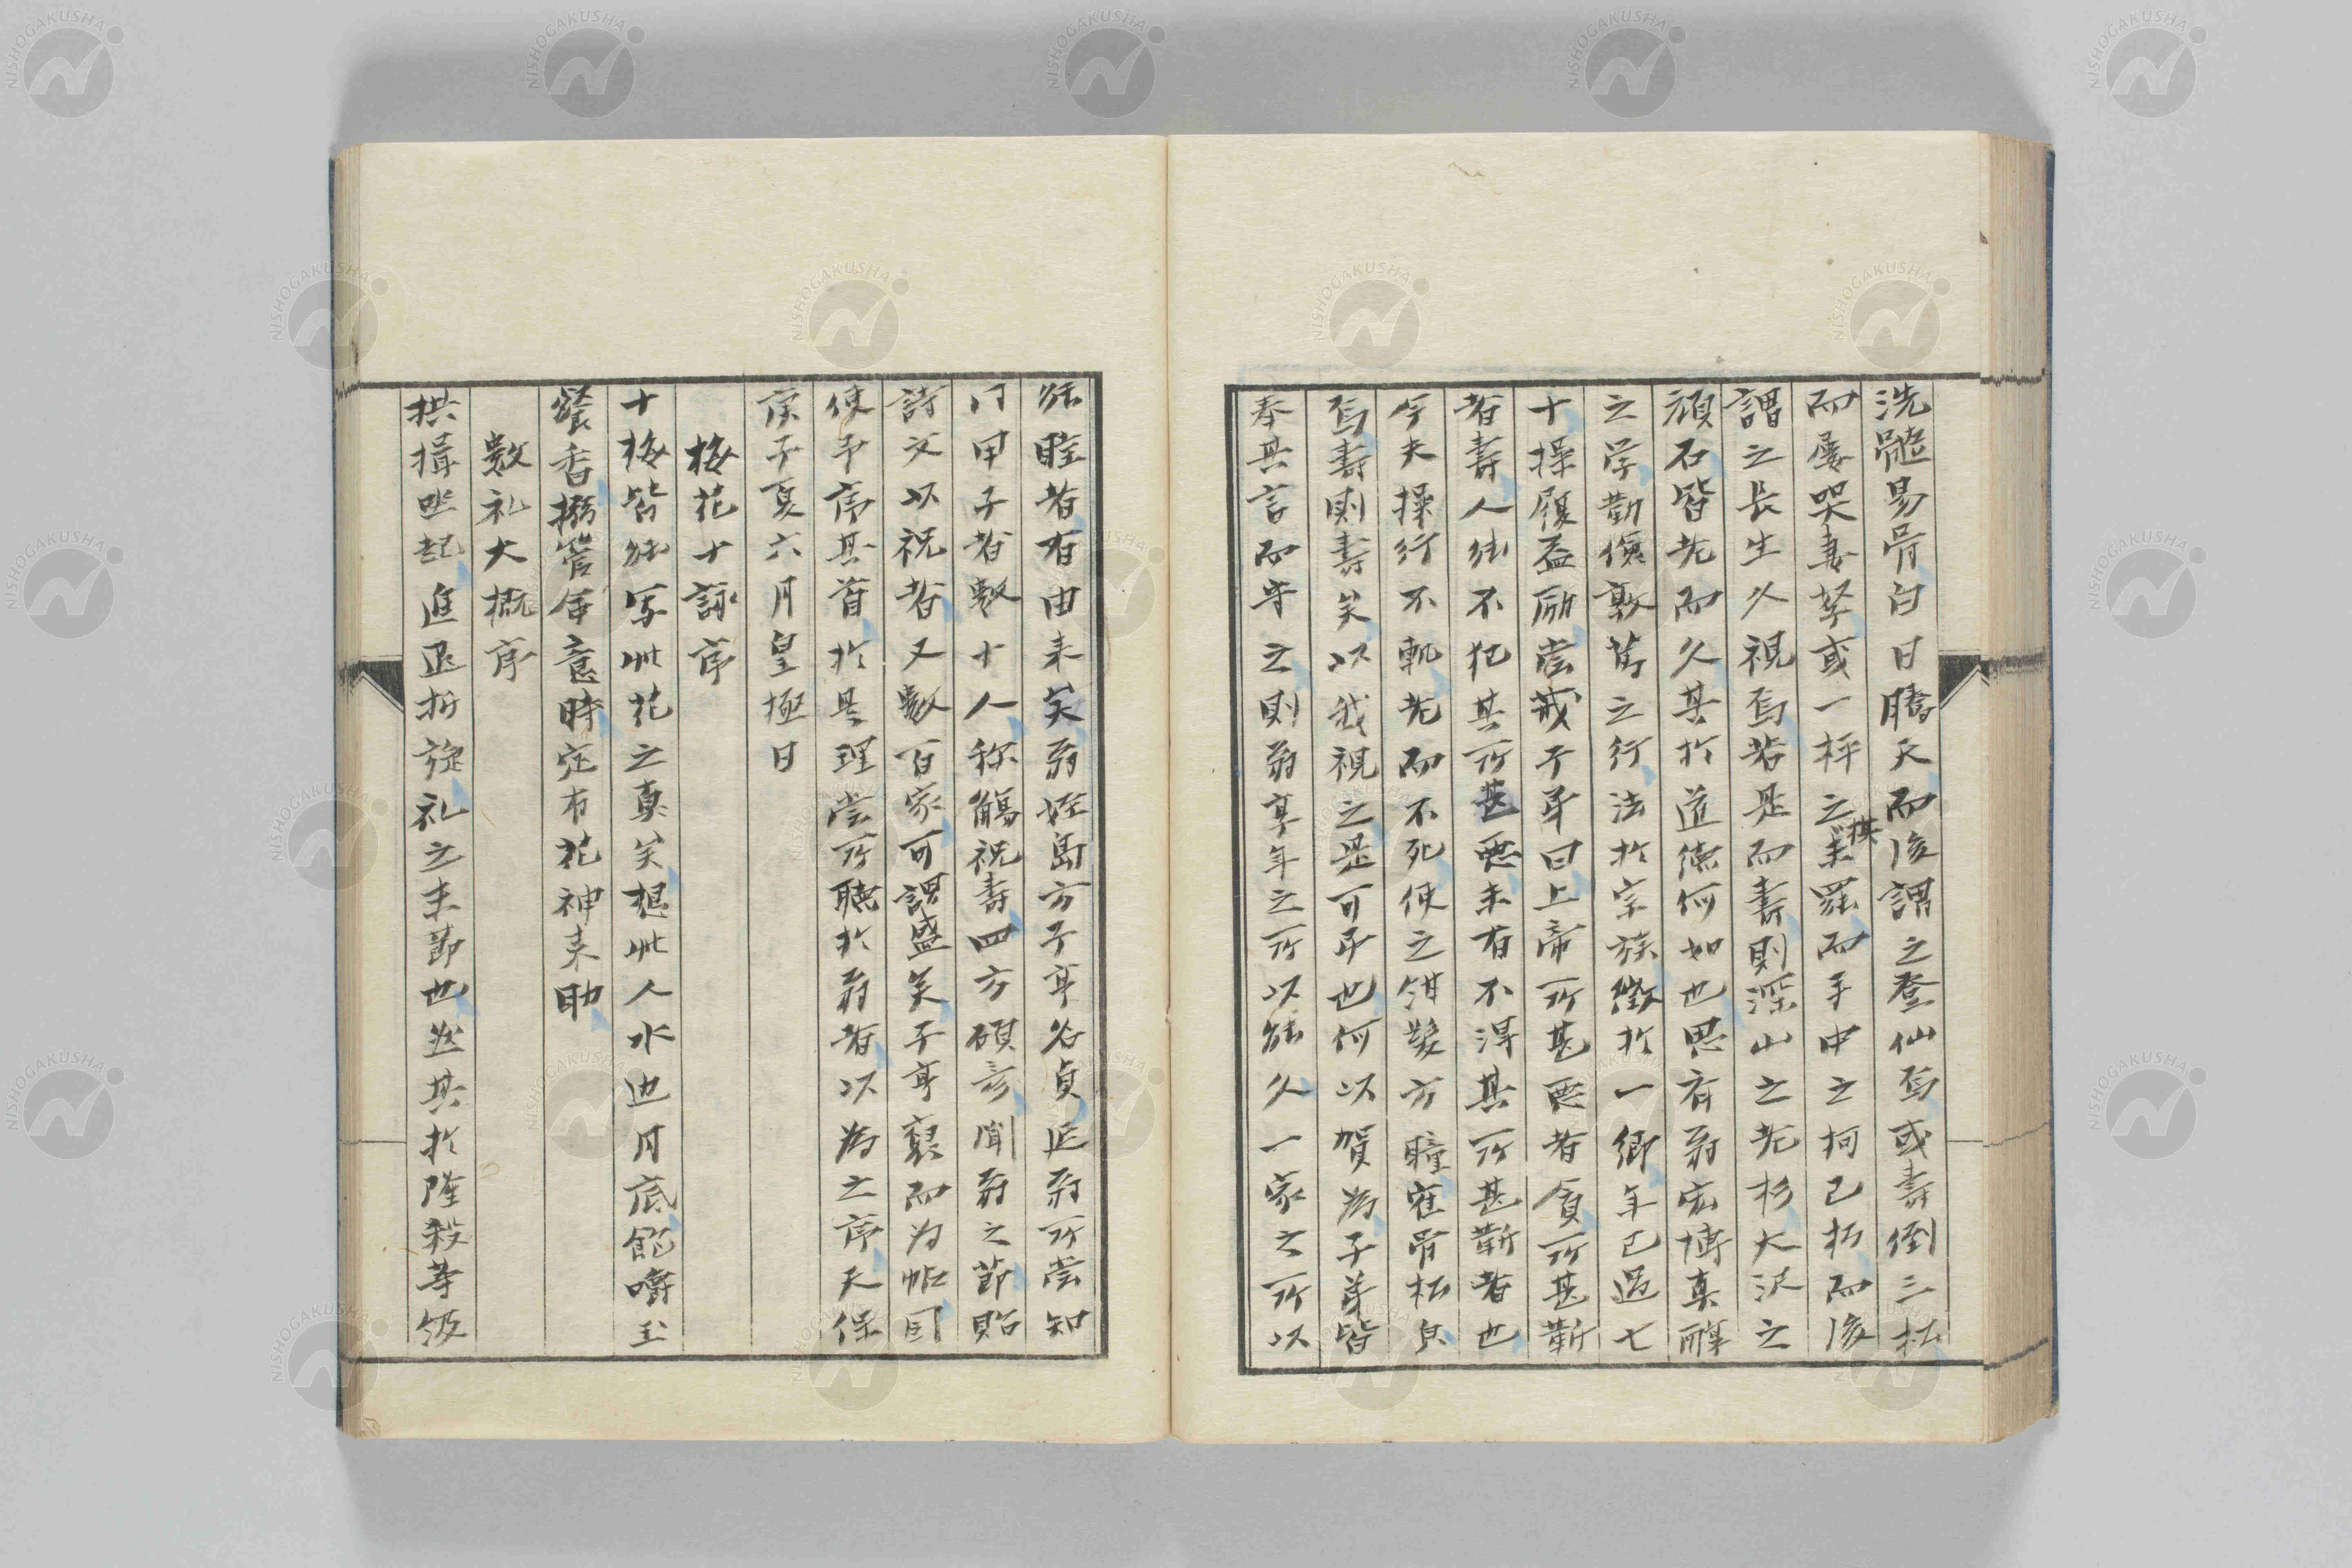 洗髓易骨白日騰天而後謂之登仙焉或壽倒三松
而屡哭妻孥或一枰之棊未罷而手中之柯已朽而後
謂之長生久視焉若是而壽則深山之老杉大沢之
頑石皆老而久其於道徳何如也思有翁宏博真醇
之学勤倹敦篤之行法於宗族徴於一郷年已過七
十操履益励嘗戒子弟曰上帝所甚悪者貪所甚靳
者壽人能不犯其所甚悪未有不得其所甚靳者也
今夫操行不軌老而不死使之紺髪方瞳寉骨松皃
焉壽則壽矣以我視之是可弔也何以賀為子弟皆
奉其言而守之則翁享年之所以能久一家之所以
能睦者有由来矣翁姪島方子享名貞延翁所嘗知
門甲子者数十人称觴祝壽四方碩彦聞翁之節貽
詩文以祝者又数百家可謂盛矣子享裒而为帖因
使予序其首於是理嘗所聴於翁者以為之序天保
庚子夏六月皇極日
梅花十詠序
十梅皆能写此花之真矣想此人水边月底飽嚼玉
餐香撥管布意時定有花神来助
数礼大概序
拱揖坐起進退折旋礼之末節也然其於隆殺等級
NISHOGAKUSHA